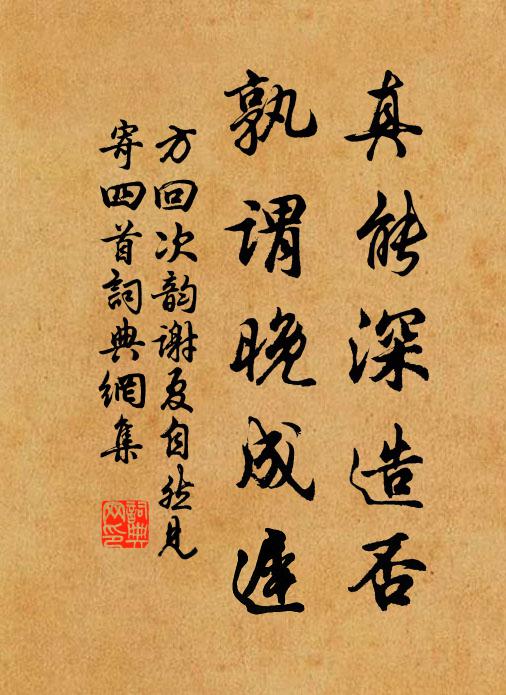 真能深造否
孰谓晚成遲
方回次韵谢夏自然见
寄四首詞典網集
詞典网印